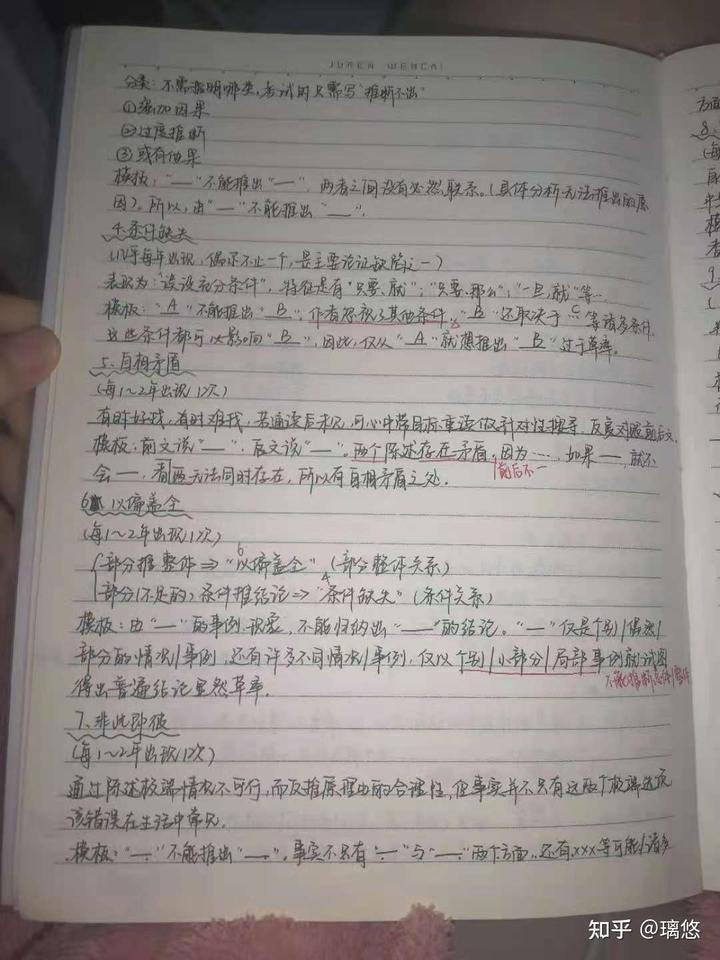 JUREN WENCAI
分类：不需指明哪类，考试时只需写"推断不出"
①强加因果
②过度推断
③或有他果
模板："—"不能推出"—"，两者之间没有必然联系。(具体分析无法推出的原
因)。所以，由"—"不能推出"—"。
4.条件缺失
(几乎每年出现，偶尔不止一个，是主要论证缺陷之一)
表现为："误设充分条件"，特征是有"只要、就"；"只要、那么"；"一旦、就"等…
模板："A"不能推出"B"，作者忽视了其他条件，"B"还取决于…C…等诸多条件，
这些条件都可以影响"B"，因此，仅从"A"就想推出"B"过于草率。
5.自相矛盾
(每1~2年出现1次)
有时好找，有时难找，若通读后未见，可心中带目标重读做针对性搜寻，反复对照前后文
模板：前文说"—"，后文说"—"。两个陈述存在矛盾，因为…，如果—，就不
前后不一
会—，看 两 无法同时存在，所以有自相矛盾之处。
6 以偏盖全
(每1~2年出现1次)
部分推整体⇒"以偏盖全"(部分整体关系)
6
部分(不足的)条件推结论⇒"条件缺失"(条件关系)
4
模板：由"—"的事例、现象，不能归纳出"—"的结论。"—"仅是个别/偶然/
部分的情况/事例，还有许多不同情况/事例，仅以个别/小部分/局部事例就试图
得出普遍结论显然草率。
7.非此即彼
(每1~2年出现1次)
通过陈述极端情况不可行，而反推原理由的合理性，但事实并不只有这两个极端选项
该错误在生活中常见.
模板："—"不能推出"—"。事实不只有"—"与"—"两个方面，还有xxx等可能/诸多
知乎 @璃悠